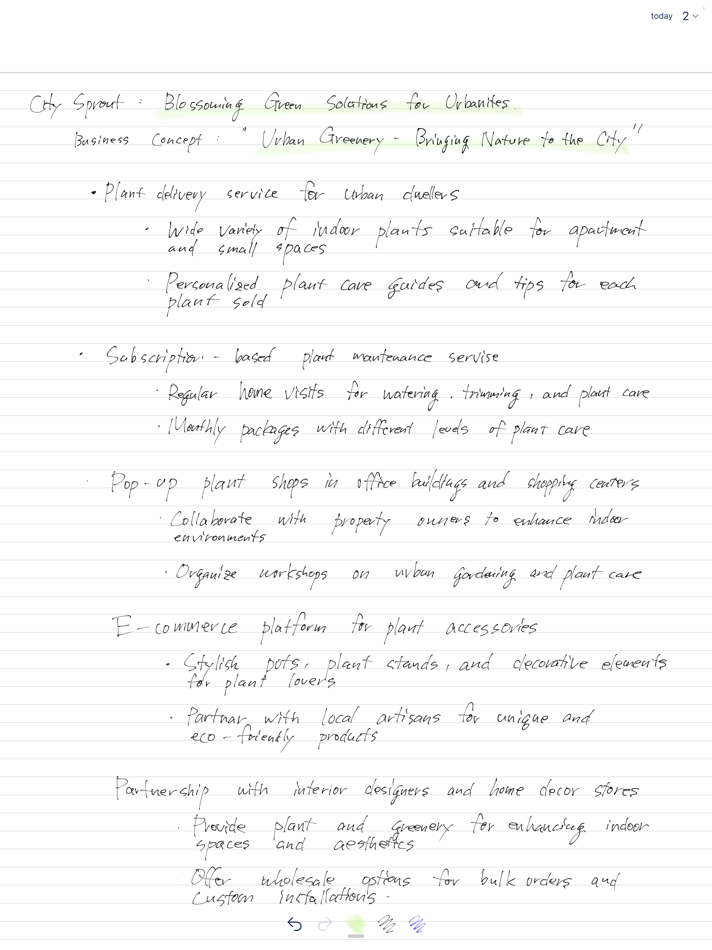 today 2
City Sprout : Blossoming Green Solutions for Urbanites.
Business Concept : " Urban Greenery - Bringing Nature to the City "
• Plant delivery service for urban dwellers
• Wide variety of indoor plants suitable for apartment
and small spaces
• Personalized plant care guides and tips for each
plant sold
• Subscription - based plant maintenance servise
• Regular home visits for watering, trimming, and plant care
• Monthly packages with different levels of plant care
• Pop-up plant shops in office buildings and shopping centers
• Collaborate with property owners to enhance indoor
environments
• Organize workshops on urban gardening and plant care
E-commerce platform for plant accessories
• Stylish pots, plant stands, and decorative elements
for plant lovers
• Partnar with local artisans for unique and
eco-friendly products
Partnership with interior designers and home decor stores
• Provide plant and greenery for enhancing indoor
spaces and aesthetics
Offer wholesale options for bulk orders and
custom installations.